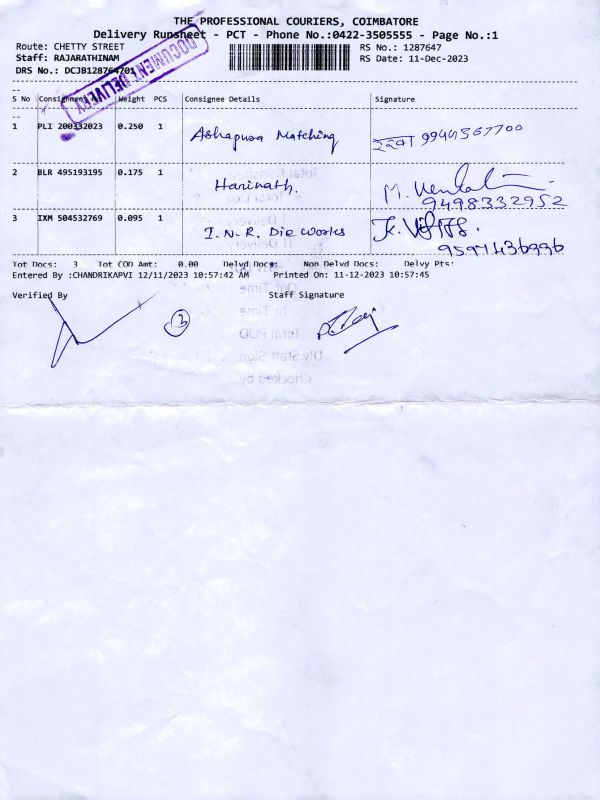 THE PROFESSIONAL COURIERS, COIMBATORE
Delivery Runsheet - PCT - Phone No.:0422-3505555 - Page No.:1
Route: CHETTY STREET RS No.: 1287647
Staff: RAJARATHINAM RS Date: 11-Dec-2023
DRS No.: DCJB128764701
DOCUMENT DELIVERY
S No Consignment No Weight PCS Consignee Details Signature
1 PLI 200332023 0.250 1 Ashapura Matching 9944367700
2 BLR 495193195 0.175 1 Harinath. M. 9498332952
3 IXM 504532769 0.095 1 I.N.R. Die Works K. 9597436996
Tot Docs: 3 Tot COD Amt: 0.00 Delvd Docs: Non Delvd Docs: Delvy Pts:
Entered By :CHANDRIKAPVI 12/11/2023 10:57:42 AM Printed On: 11-12-2023 10:57:45
Verified By Staff Signature
3